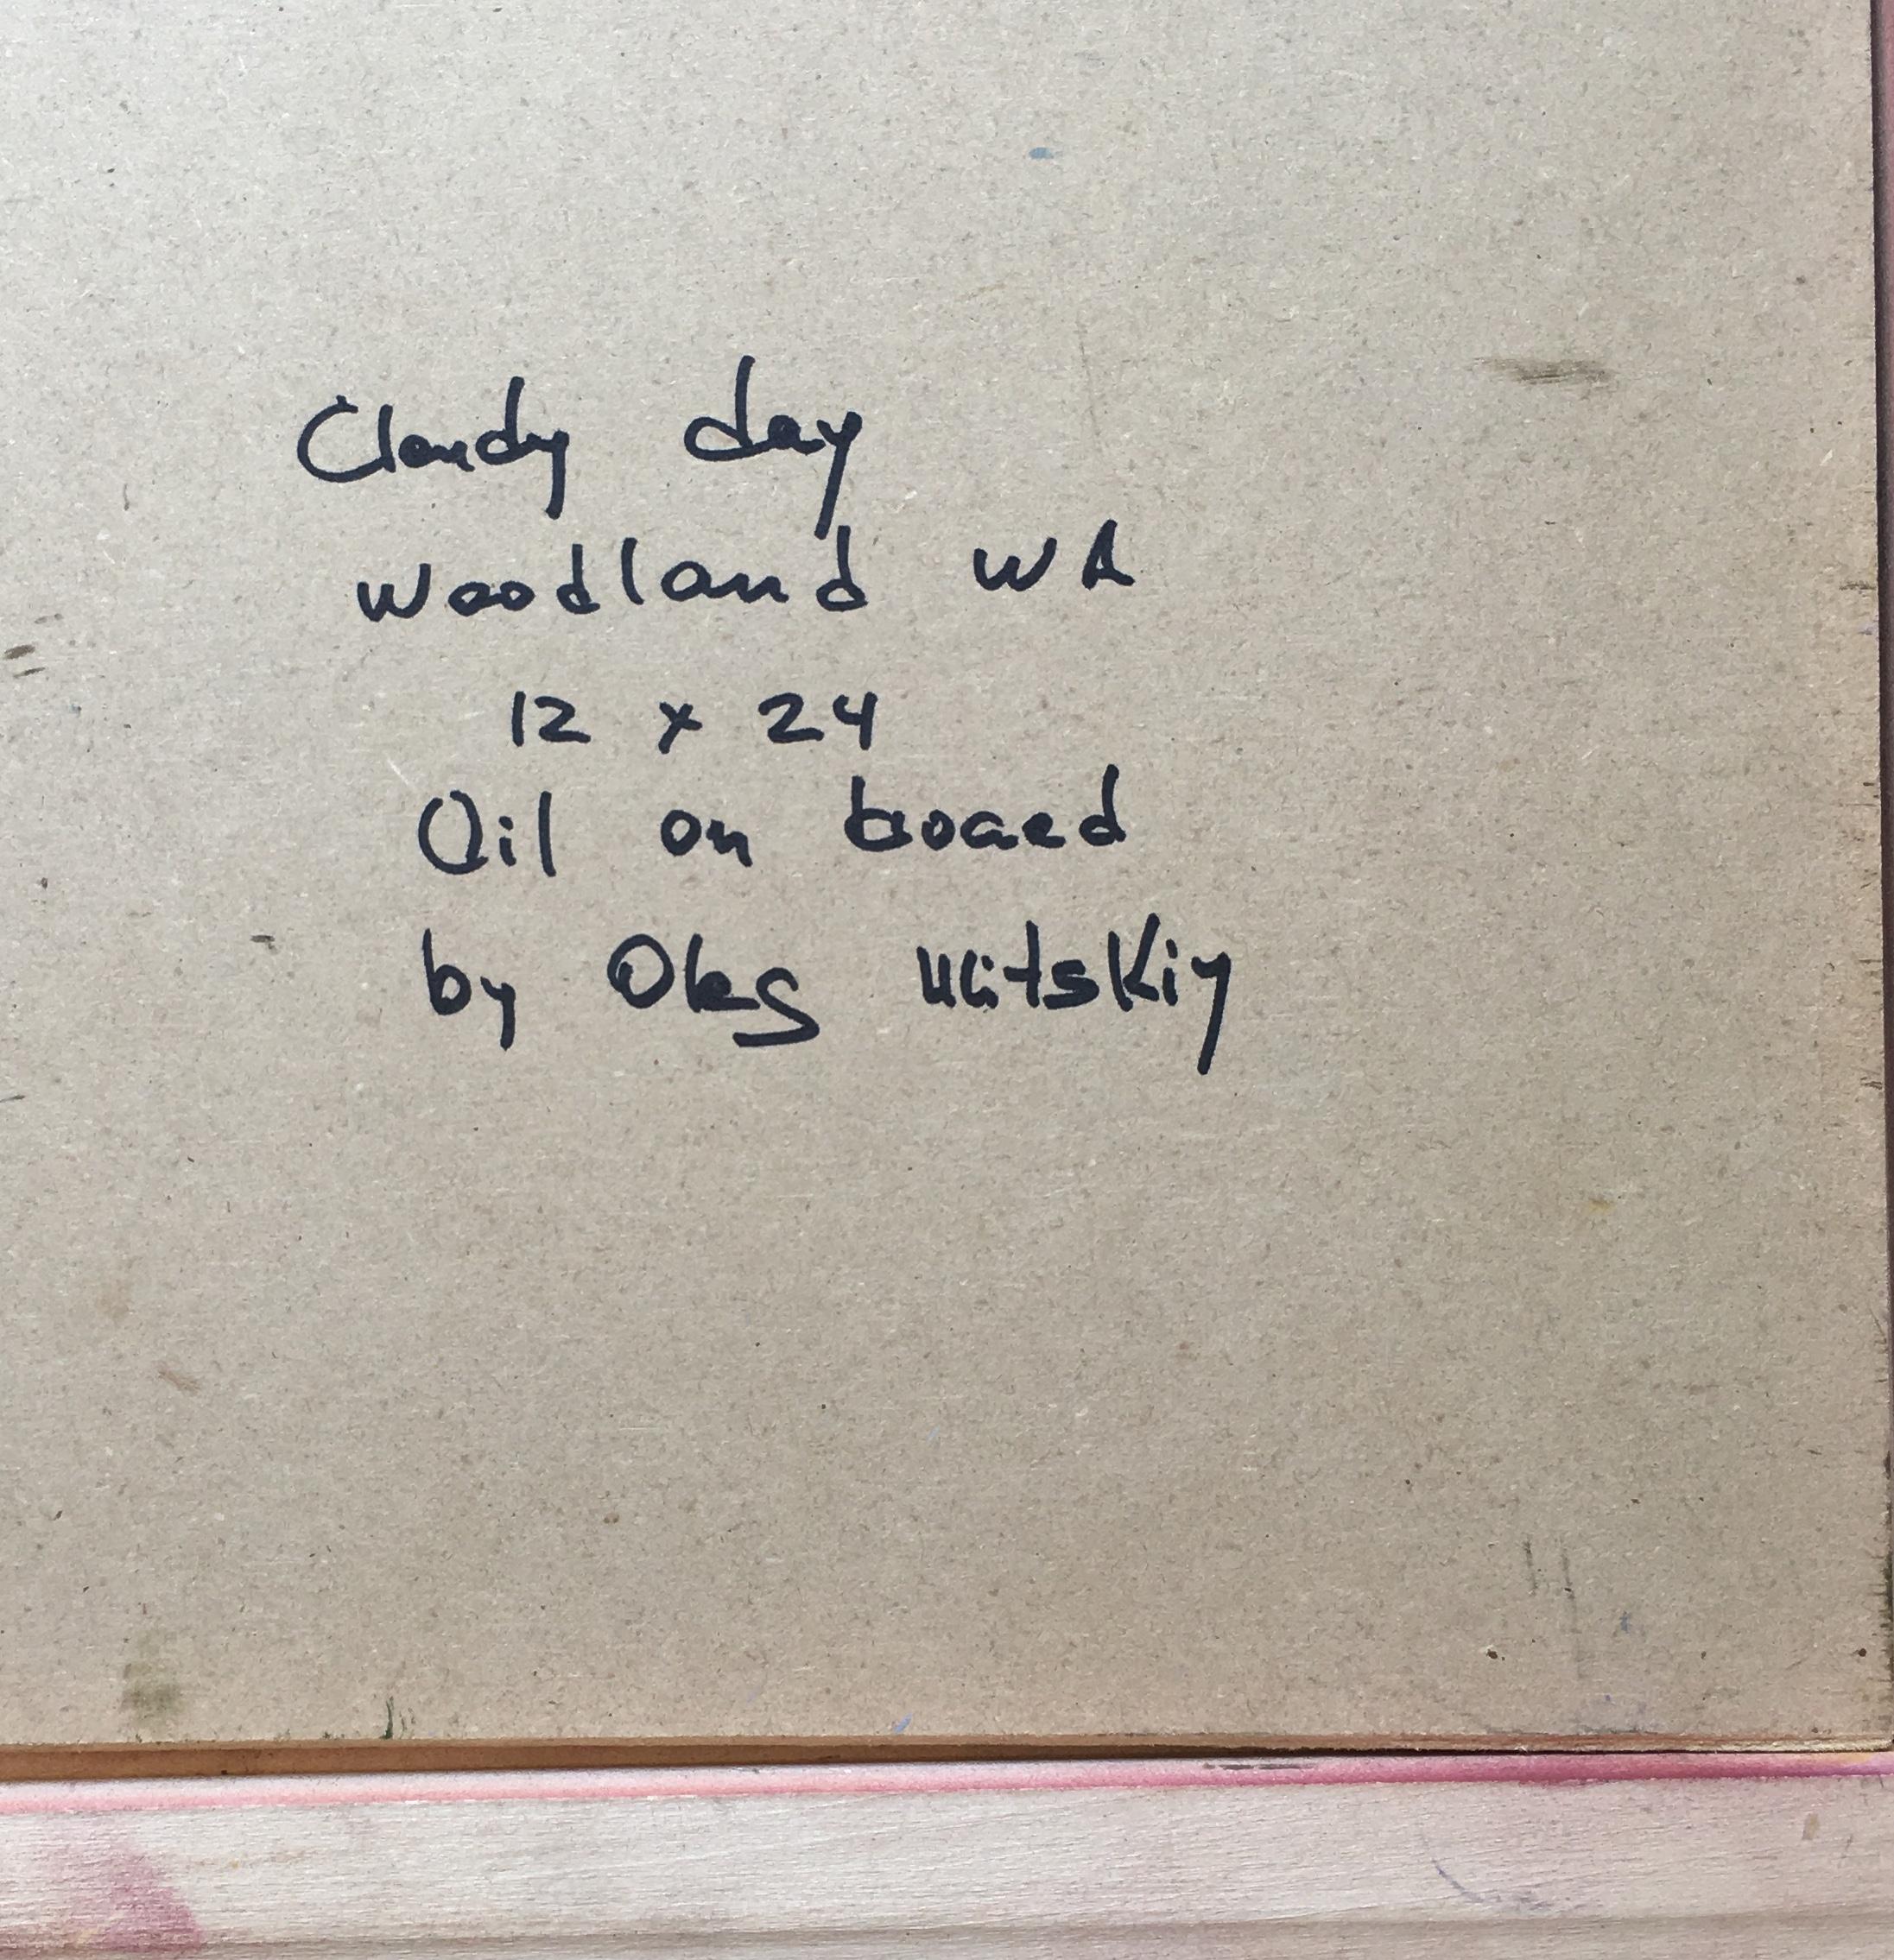 Cloudy day
Woodland WA
12 x 24
Oil on board
by Oleg Ulitskiy